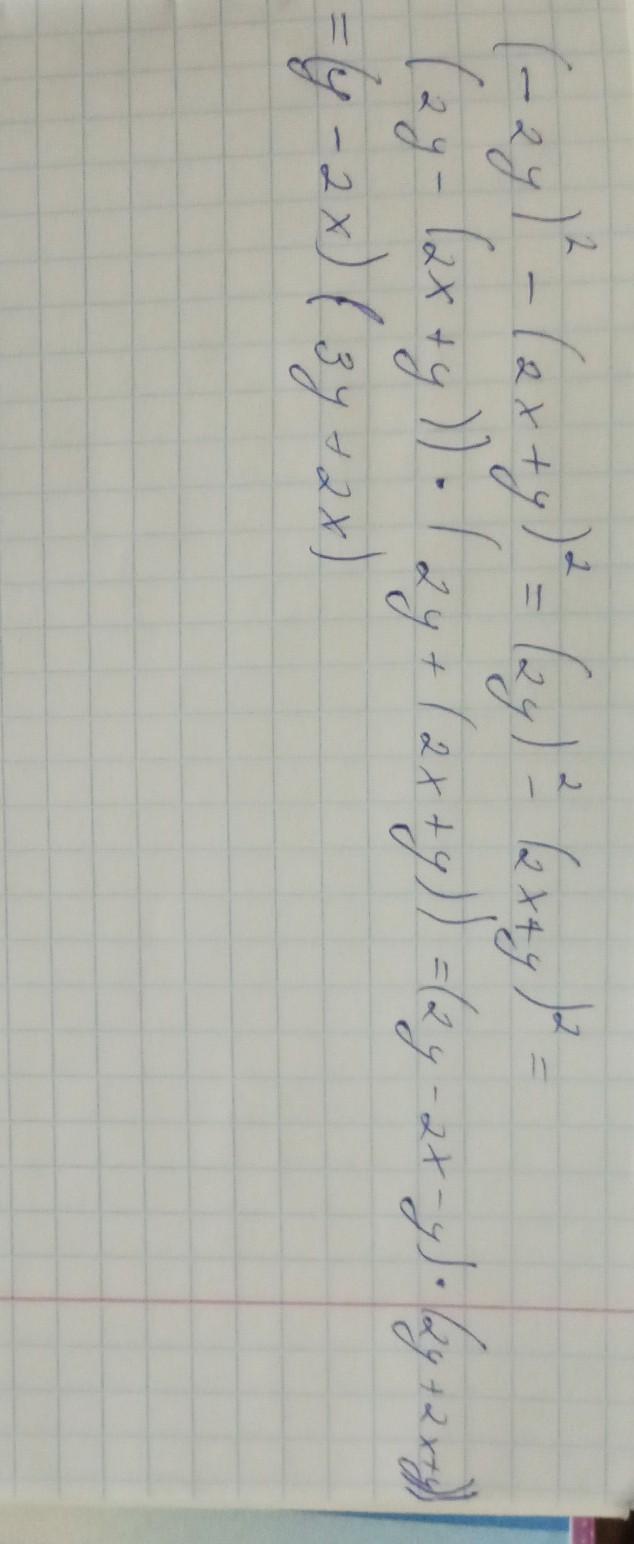 (-2y)² - (2x+y)² = (2y)² - (2x+y)² =
(2y - (2x+y)) · (2y + (2x+y)) = (2y - 2x - y) · (2y + 2x+y)
= (y - 2x) (3y + 2x)